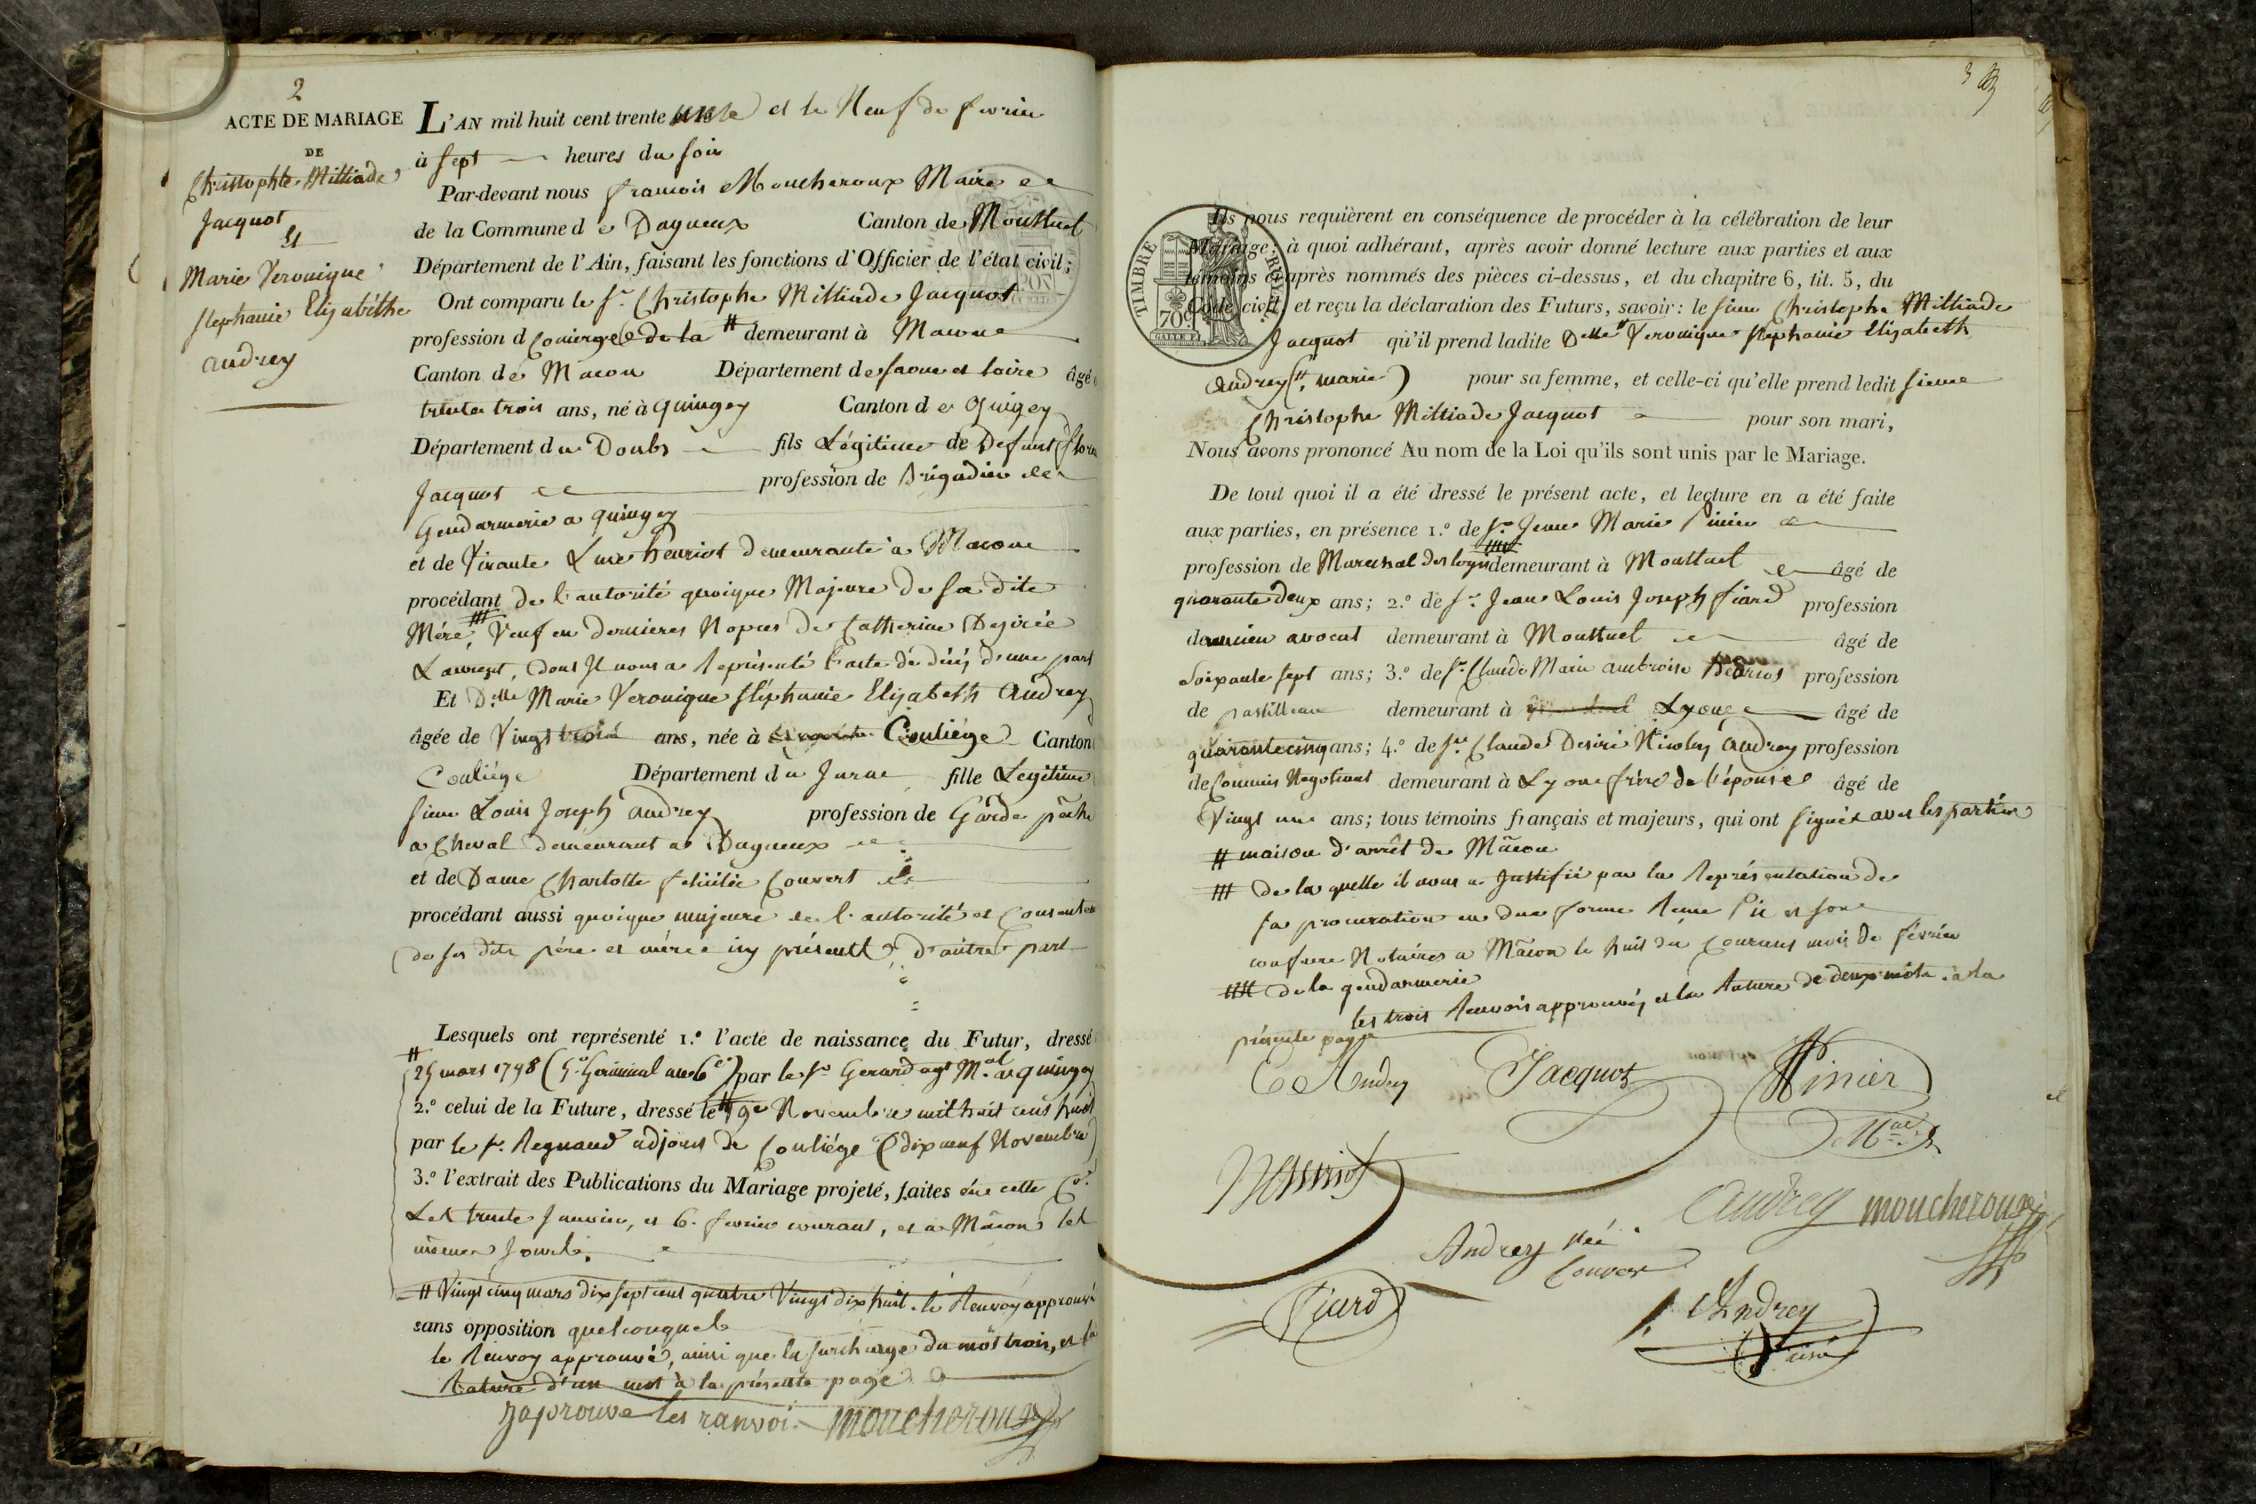 2
ACTE DE MARIAGE
DE
Christophe Milliade
Jacquot
Et
Marie Veronique
stephanie Elizabethe
audrey
L'AN mil huit cent trente et le Neuf de fevrier
à sept heures du soir
Par-devant nous francois Moucheroux Maire
de la Commune de Dagneux Canton de Montluel
Département de l'Ain, faisant les fonctions d'Officier de l'état civil;
Ont comparu le sr. Christophe Milliade Jacquot
profession d Concierge de la # demeurant à Macon
Canton de Macon Département de saone et loire âgé
trente trois ans, né à quingey Canton de Quigey
Département du Doubs fils Légitime de Defunt
Jacquot profession de Brigadier de
Gendarmerie a quingey
et de Vivante Luce henriot demeurante a Macon
procédant de l'autorité quoique Majeure de sa dite
Mére, ### Veuf en dernieres Nopces de Catherine Desirée
dont Il nous a Représenté l'acte de décés d'une part
Et Delle Marie Veronique stéphanie Elisabeth Audrey
âgée de Vingt trois ans, née à Couliége Canton
Couliége Département du Jura fille Legitime
sieur Louis Joseph audrey profession de Garde pêche
a Cheval demeurant a Dagneux
et de Dame Charlotte felicitée Couvert
procédant aussi quoique majeure de l'autorité et Consentem
de ses dits pére et mére icy présents d'autre part
Lesquels ont représenté 1.º l'acte de naissance du Futur, dressé
# 25 mars 1798 (5 Germinal an 6e) par le sr Gerard agt Mal a quingey
2.º celui de la Future, dressé le 19e Novembre mil huit cent huit
par le sr. Regnaud adjoint de Couliége (dix neuf Novembre)
3.º l'extrait des Publications du Mariage projeté, faites en cette Ce.
Les trente Janvier, et 6. fevrier courant, et a Mâcon les
mêmes Jours.
# Vingt cinq mars dix sept cent quatre Vingt dix huit. le Renvoy approuvé
sans opposition quelconque
le Renvoy approuvé, ainsi que la surcharge du mot trois, et la
Rature d'un mot à la présente page
Japrouve les ranvoi. moucheroux
3
TIMBRE
ROYAL
70 C
Ils nous requièrent en conséquence de procéder à la célébration de leur
Mariage; à quoi adhérant, après avoir donné lecture aux parties et aux
témoins ci-après nommés des pièces ci-dessus, et du chapitre 6, tit. 5, du
Code civil, et reçu la déclaration des Futurs, savoir: le sieur Christophe Milliade
Jacquot qu'il prend ladite Delle # Veronique stephanie Elisabeth
Audrey (# marie) pour sa femme, et celle-ci qu'elle prend ledit sieur
Christophe Milliade Jacquot pour son mari,
Nous avons prononcé Au nom de la Loi qu'ils sont unis par le Mariage.
De tout quoi il a été dressé le présent acte, et lecture en a été faite
aux parties, en présence 1.º de sr. Jean Marie Pinier
profession de Marechal des logis #### demeurant à Montluel âgé de
quarante deux ans; 2.º de sr. Jean Louis Joseph Picard profession
dancien avocat demeurant à Montluel âgé de
Soixante sept ans; 3.º de sr. Claude Marie ambroise Henriot profession
de demeurant à Lyon âgé de
quarante cinq ans; 4.º de sr Claude Desiré Nicolas Audrey profession
de Commis Negotiant demeurant à Lyon frère de l'épouse âgé de
Vingt un ans; tous témoins français et majeurs, qui ont signés avec les parties
# maison d'arrêt de Mâcon
### de la quelle il nous a Justifié par la Représentation de
sa procuration en due forme Reçue Pic et son
confrere Notaires a Mâcon le huit du Courant mois de février
#### de la gendarmerie
les trois Renvois approuvés et la Rature de deux mots a la
présente page
Audrey Jacquot Pinier
Henriot
audrey moucheroux
Andrey née
Couver
Picard
Andrey